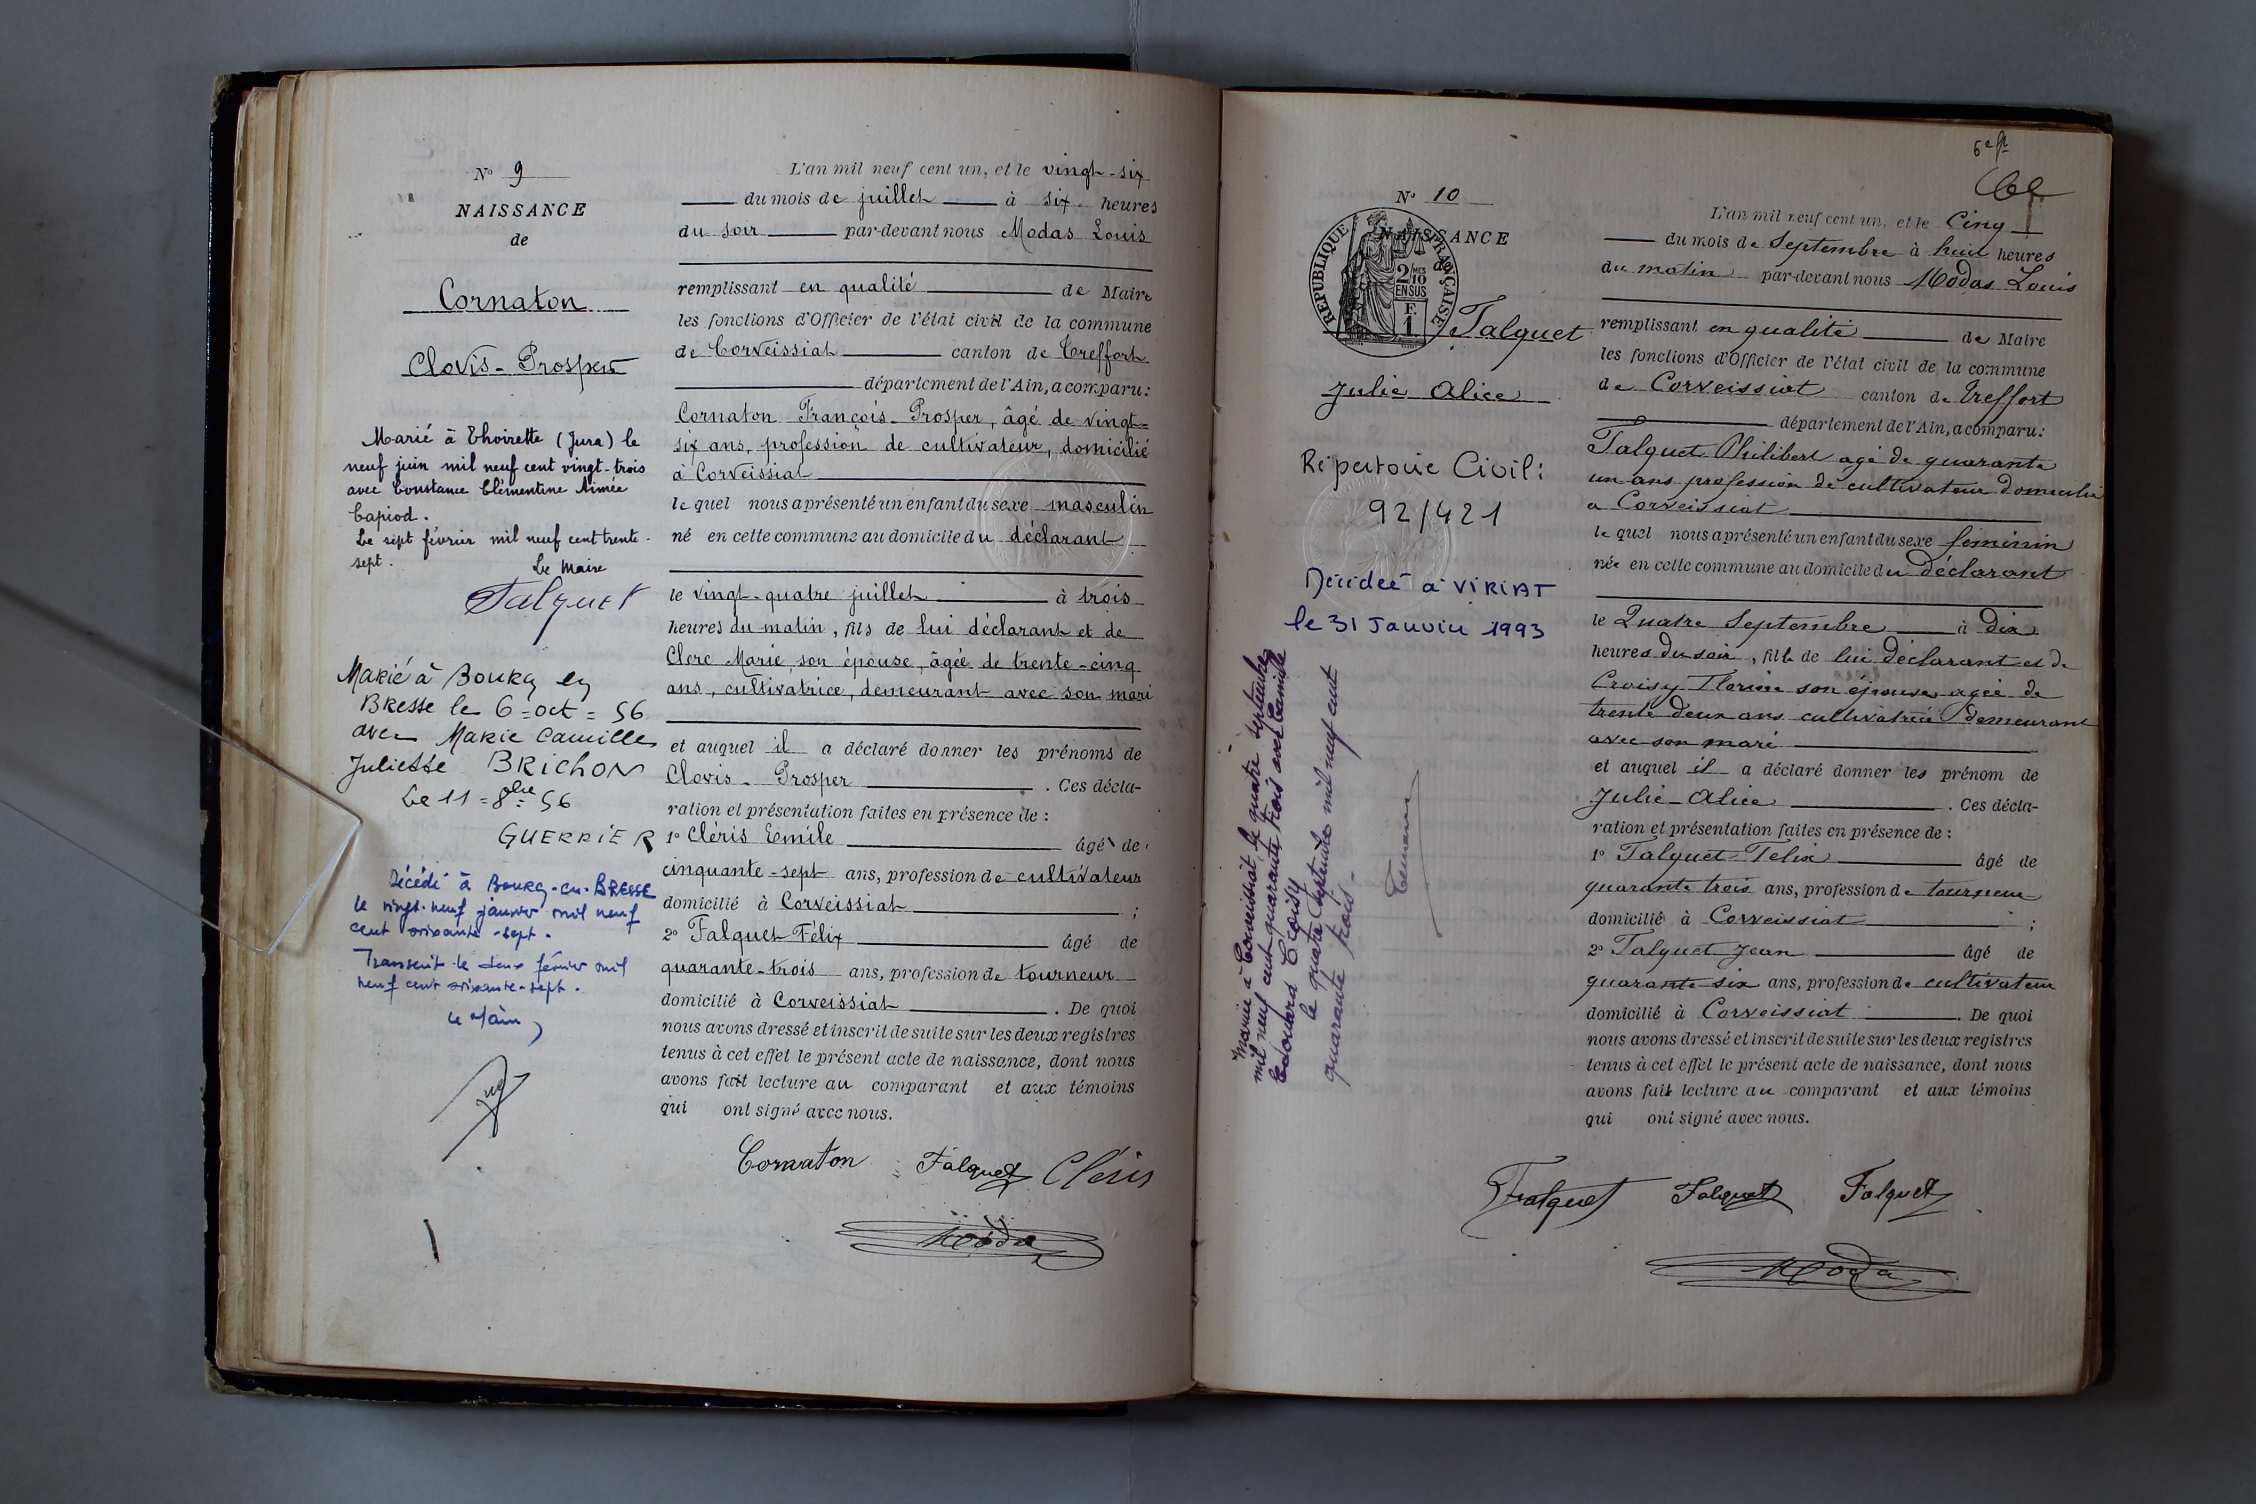 N° 9
NAISSANCE
de
Cornaton
Clovis-Prosper
Marié à Thoirette (Jura) le
neuf juin mil neuf cent vingt-trois
avec Constance Clémentine Aimée
Capiod.
Le sept février mil neuf cent trente-
sept.
Le Maire
Falquet
Marié à Bourg en
Bresse le 6=oct=56
avec Marie Camille
Juliette BRICHON
Le 11=8bre=56
GUERRIER
Décédé à Bourg-en-BRESSE
le vingt-neuf janvier mil neuf
cent soixante-sept.
Transcrit le deux février mil
neuf cent soixante-sept.
Le Maire,
L'an mil neuf cent un, et le vingt-six
du mois de juillet à six heures
du soir par-devant nous Modas Louis
remplissant en qualité de Maire
les fonctions d'Officier de l'état civil de la commune
de Corveissiat canton de Treffort
département de l'Ain, a comparu:
Cornaton François-Prosper, âgé de vingt-
six ans, profession de cultivateur, domicilié
à Corveissiat
lequel nous a présenté un enfant du sexe masculin
né en cette commune au domicile du déclarant
le vingt-quatre juillet à trois
heures du matin, fils de lui déclarant et de
Clerc Marie, son épouse, âgée de trente-cinq
ans, cultivatrice, demeurant avec son mari
et auquel il a déclaré donner les prénoms de
Clovis-Prosper . Ces décla-
ration et présentation faites en présence de :
1° Cléris Emile âgé de
cinquante-sept ans, profession de cultivateur
domicilié à Corveissiat ;
2° Falquet Félix âgé de
quarante-trois ans, profession de tourneur
domicilié à Corveissiat . De quoi
nous avons dressé et inscrit de suite sur les deux registres
tenus à cet effet le présent acte de naissance, dont nous
avons fait lecture au comparant et aux témoins
qui ont signé avec nous.
Cornaton Falquet Cléris
Modas
6e
N° 10
NAISSANCE
REPUBLIQUE FRANÇAISE
2/10 MES
EN SUS
F.
1
Falquet
Julie Alice
Répertoire Civil:
92/421
Décédée à VIRIAT
le 31 Janvier 1993
Mariée à Corveissiat le quatre septembre
mil neuf cent quarante trois avec Camille
Edouard Croisy
le quatre septembre mil neuf cent
quarante trois.
L'an mil neuf cent un, et le Cinq
du mois de Septembre à huit heures
du matin par-devant nous Modas Louis
remplissant en qualité de Maire
les fonctions d'Officier de l'état civil de la commune
de Corveissiat canton de Treffort
département de l'Ain, a comparu:
Falquet Philibert agé de quarante
un ans profession de cultivateur domicilié
a Corveissiat
lequel nous a présenté un enfant du sexe féminin
née en cette commune au domicile du déclarant
le Quatre Septembre à dix
heures du soir, fille de lui déclarant et de
Croisy Florine son épouse agée de
trente deux ans cultivatrice demeurant
avec son mari
et auquel il a déclaré donner les prénom de
Julie-Alice . Ces décla-
ration et présentation faites en présence de :
1° Falquet Félix âgé de
quarante trois ans, profession de tourneur
domicilié à Corveissiat ;
2° Falquet Jean âgé de
quarante six ans, profession de cultivateur
domicilié à Corveissiat . De quoi
nous avons dressé et inscrit de suite sur les deux registres
tenus à cet effet le présent acte de naissance, dont nous
avons fait lecture au comparant et aux témoins
qui ont signé avec nous.
Falquet Falquet Falquet
Modas